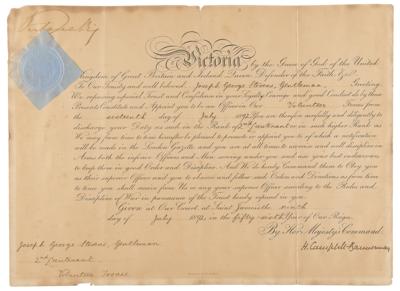 Victoria R
Victoria by the Grace of God of the United
Kingdom of Great Britain and Ireland Queen, Defender of the Faith, &c.
To Our Trusty and well beloved Joseph George Stevens, Gentleman, Greeting.
We reposing especial Trust and Confidence in your Loyalty, Courage and good Conduct do by these
Presents Constitute and Appoint you to be an Officer in Our Volunteer Forces from
the sixteenth day of July 1892. You are therefore carefully and diligently to
discharge your Duty as such in the Rank of 2nd Lieutenant or in such higher Rank as
We may from time to time hereafter be pleased to promote or appoint you to of which a notification
will be made in the London Gazette and you are at all times to exercise and well discipline in
Arms both the inferior Officers and Men serving under you and use your best endeavours
to keep them in good Order and Discipline. And We do hereby Command them to Obey you
as their superior Officer and you to observe and follow such Orders and Directions as from time
to time you shall receive from Us or any superior Officer according to the Rules and
Discipline of War in pursuance of the Trust hereby reposed in you.
Given at Our Court, at Saint James's the ninth
day of July 1892 in the fifty sixth Year of Our Reign.
By Her Majesty's Command.
H. Campbell-Bannerman
Joseph George Stevens, Gentleman
2nd Lieutenant
Volunteer Forces